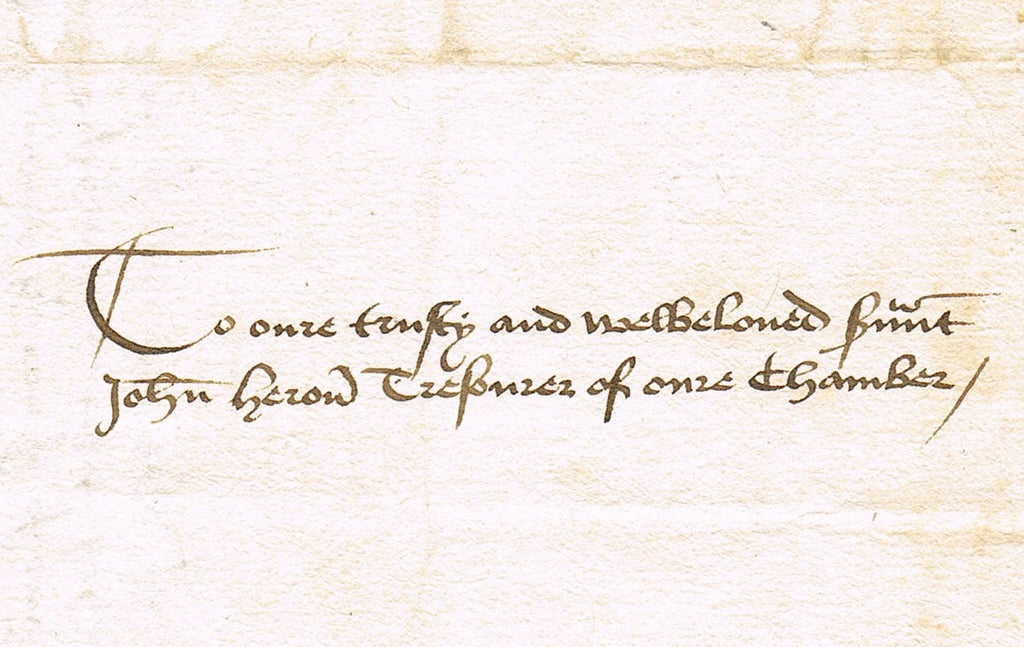 To oure trusty and welbeloued s̾uũt
Joħn heroñ Tresourer of oure Chamber /